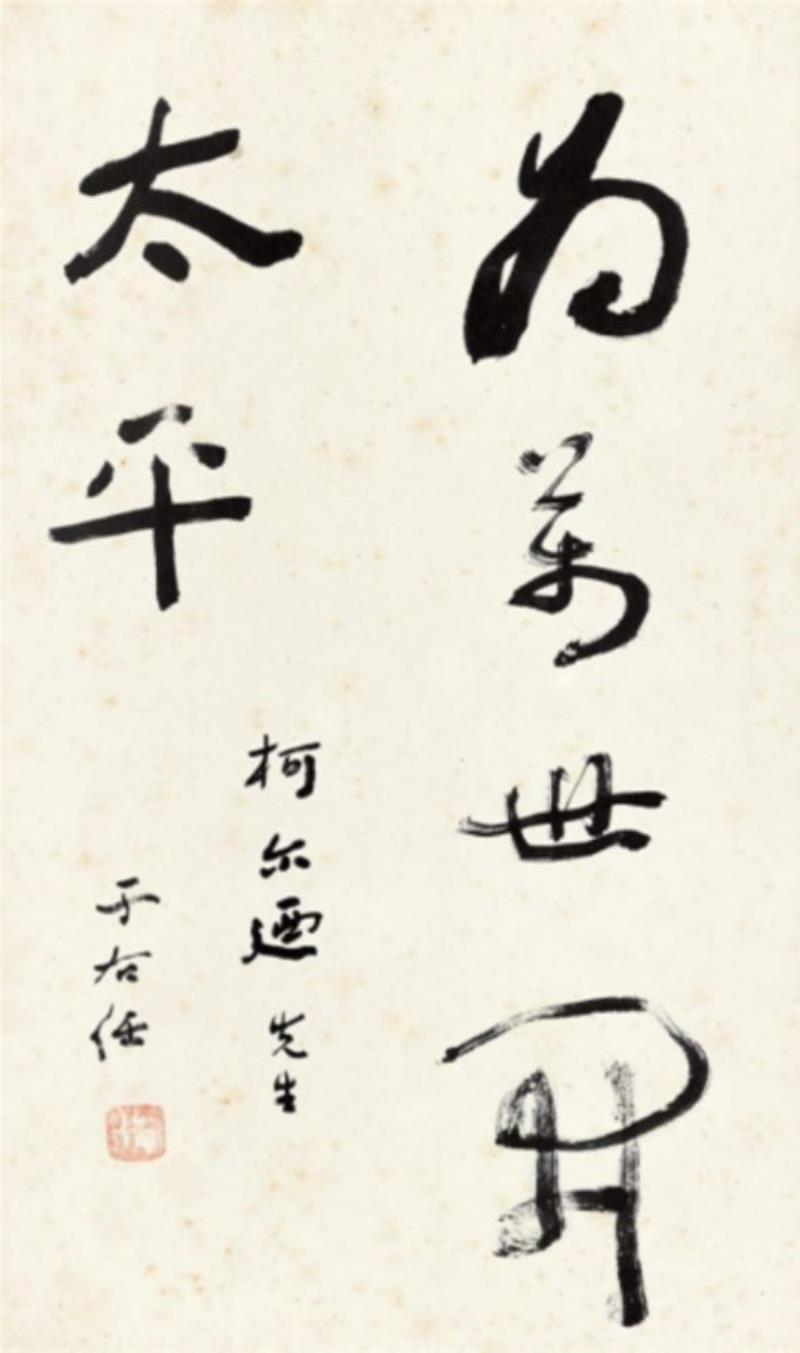 为萬世開
太平
柯尔迺先生
于右任